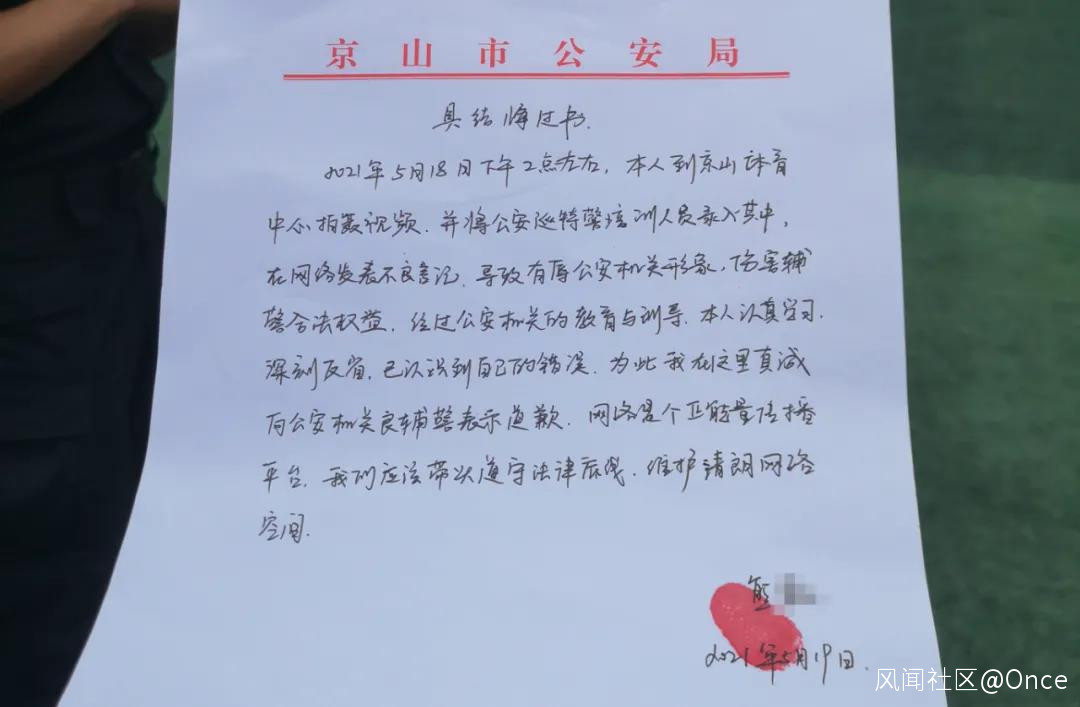 京山市公安局
具结悔过书.
2021年5月18日下午2点左右,本人到京山体育
中心拍摄视频.并将公安巡特警培训人员录入其中,
在网络发表不良言论.导致有辱公安机关形象,伤害辅
警合法权益.经过公安机关的教育与训导.本人认真学习.
深刻反省.已认识到自己的错误.为此我在这里真诚
向公安机关民辅警表示道歉.网络是个正能量传播
平台.我们应该带头遵守法律底线.维护清朗网络
空间.
熊
2021年5月19日.
风闻社区@Once